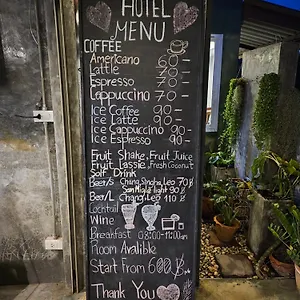 HOTEL
MENU
COFFEE
Americano 60.-
Lattle 70.-
Espresso 70.-
Cappuccino 70.-
Ice Coffee 90.-
Ice Latte 90.-
Ice Cappuccino 90.-
Ice Espresso 90.-
Fruit Shake, Fruit Juice
Fruit Lassie, Fresh Coconut
Soft Drink
Beer/S Chang Singha Leo 70฿
San Miguel light 90฿
Beer/L Chang, Leo 110฿
Cocktail
Wine
Breakfast 8:00-11:00
Room Avalible
Start From 600฿
Thank You